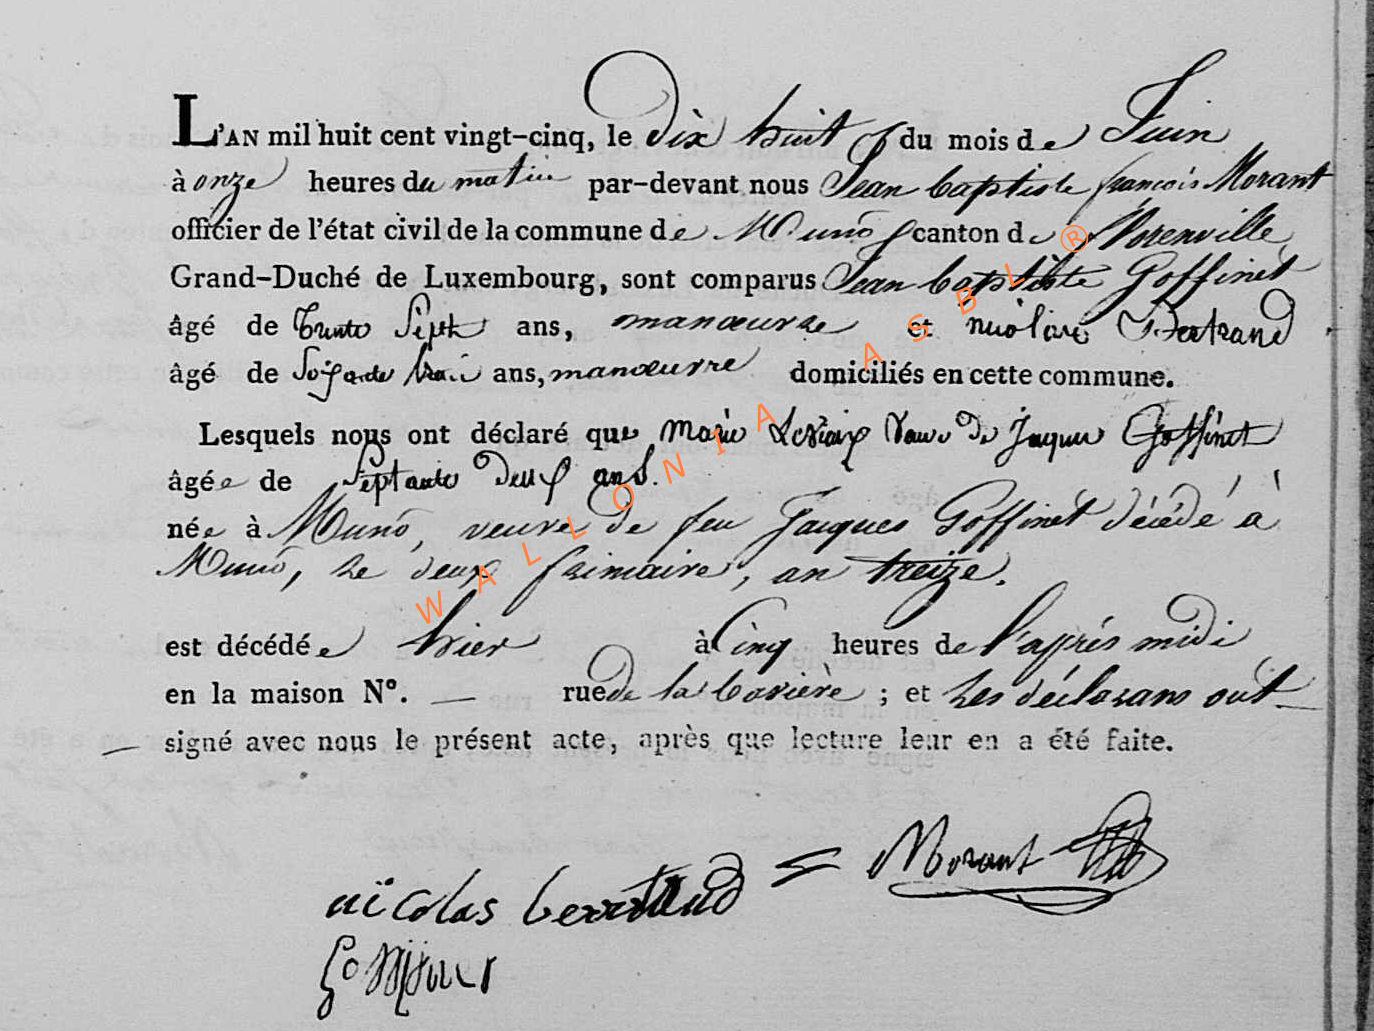 L'AN mil huit cent vingt-cinq, le dix huit du mois de Juin
à onze heures du matin par-devant nous Jean baptiste françois Morant
officier de l'état civil de la commune de Muno canton de florenville
Grand-Duché de Luxembourg, sont comparus Jean baptiste Goffinet
âgé de trente Sept ans, manœuvre et nicolas Bertrand
âgé de Soixante trois ans, manœuvre domiciliés en cette commune.
Lesquels nous ont déclaré que marie veuve de jaque Goffinet
âgée de Septante deux ans.
née à Muno, veuve de feu Jacques Goffinet décédé à
Muno, le deux frimaire, an treize.
est décédée hier à Cinq heures de l'après midi
en la maison N°. — rue de la ; et les déclarans ont
signé avec nous le présent acte, après que lecture leur en a été faite.
Morant
nicolas bertrand
WALLONIA ASBL ®